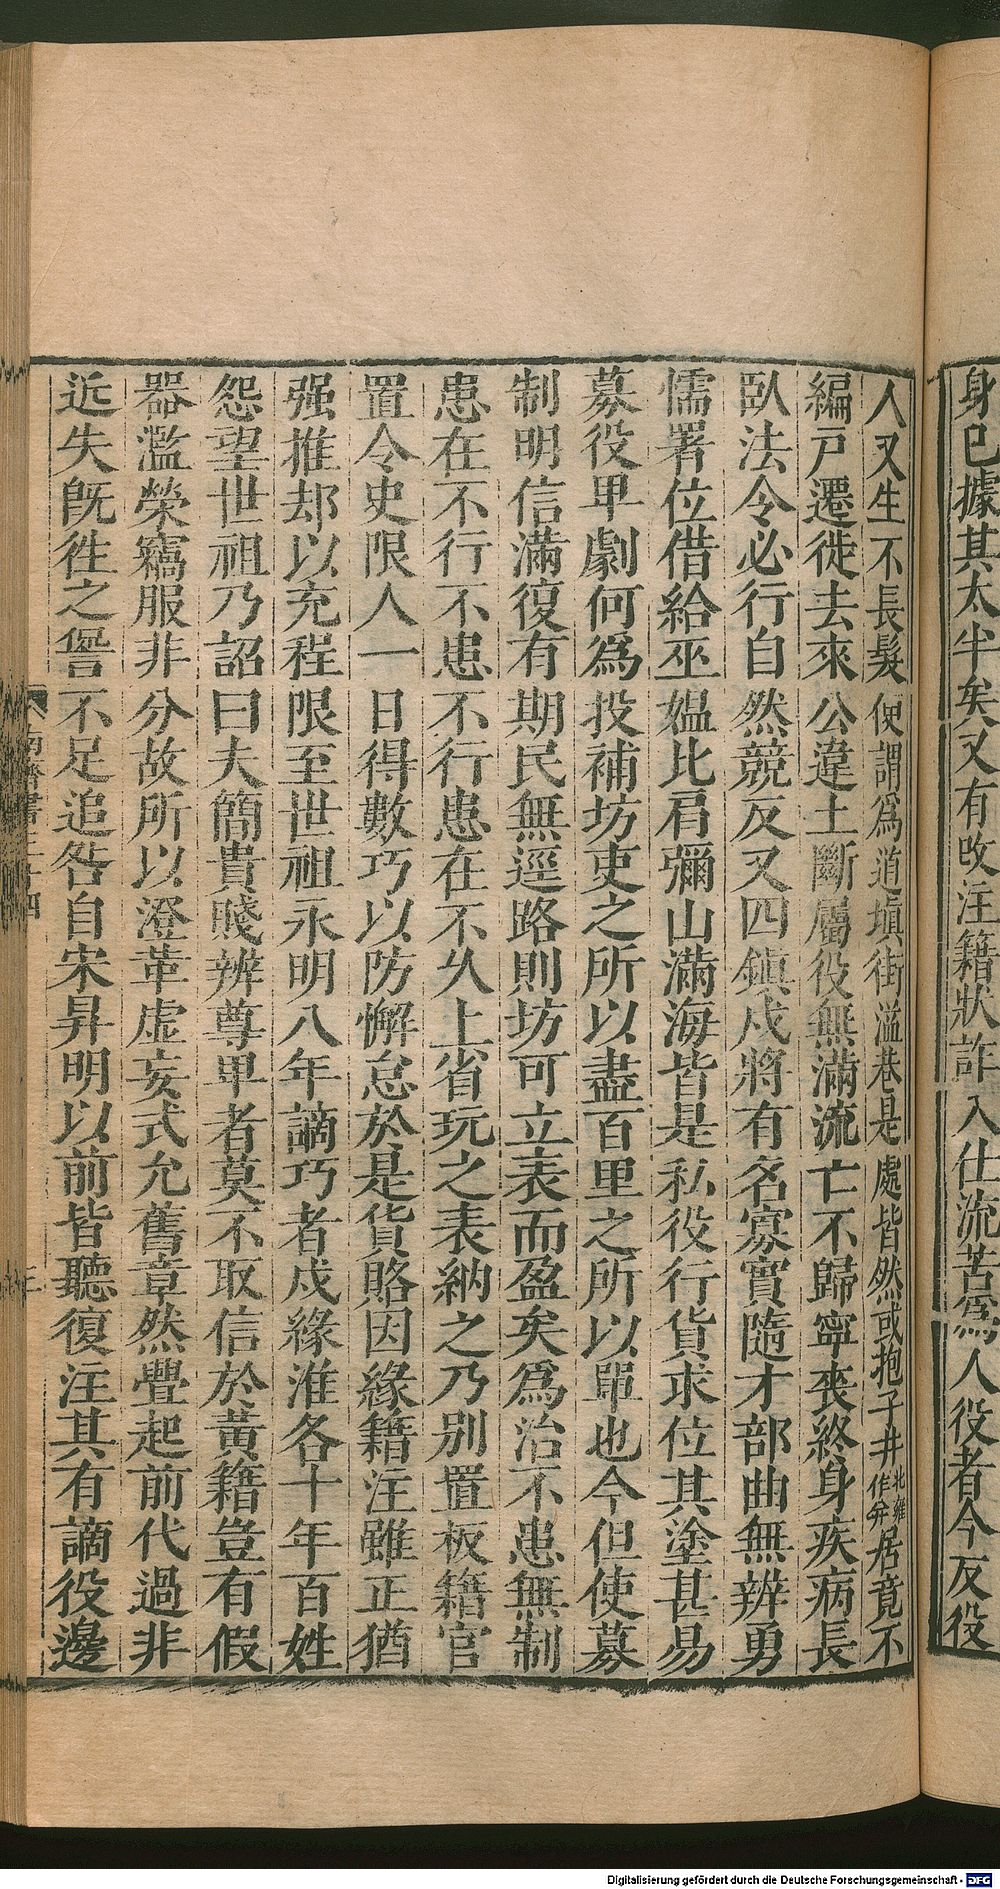 身已據其太半矣又有改注籍狀詐入仕流苦爲人役者今反役
人又生不長髮便謂爲道塡街溢巷是處皆然或抱子井北雍作弁居竟不
編戸遷徙去來公違土斷屬役無滿流亡不歸寧喪終身疾病長
臥法令必行自然競反又四鎭戍將有名寡實隨才部曲無辨勇
懦署位借給巫媼比肩彌山滿海皆是私役行貨求位其塗甚易
募役卑劇何爲投補坊吏之所以盡百里之所以單也今但使募
制明信滿復有期民無逕路則坊可立表而盈矣爲治不患無制
患在不行不患不行患在不久上省玩之表納之乃別置板籍官
置令史限人一日得數巧以防懈怠於是貨賂因緣籍注雖正猶
强推却以充程限至世祖永明八年謫巧者戍緣淮各十年百姓
怨望世祖乃詔曰夫簡貴賤辨尊卑者莫不取信於黃籍豈有假
器濫榮竊服非分故所以澄革虛妄式允舊章然釁起前代過非
近失旣徃之諐不足追咎自宋昇明以前皆聽復注其有謫役邊
南齊書三十四
三
Digitalisierung gefördert durch die Deutsche Forschungsgemeinschaft - DFG